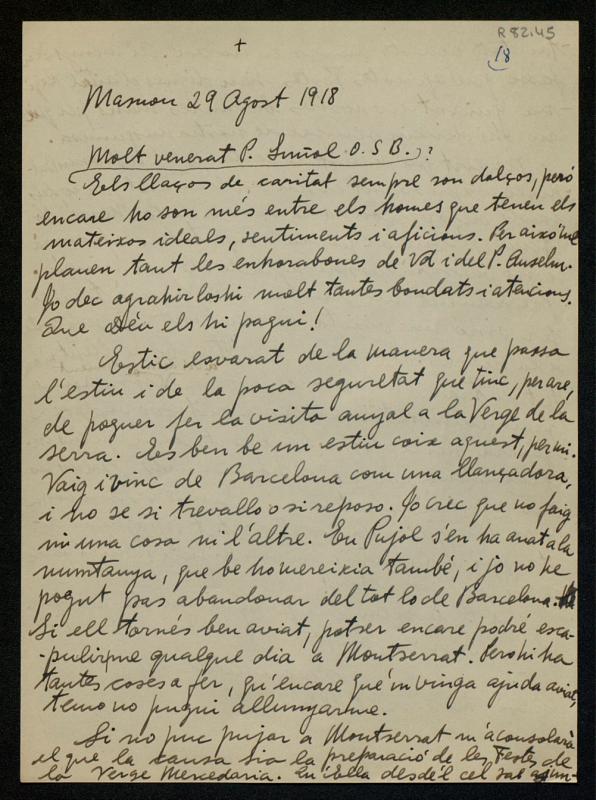 R 82.45
18
+
Masnou 29 Agost 1918
Molt venerat P. Suñol O.S.B.
Els llaços de caritat sempre son dolços, peró
encare ho son més entre els homes que tenen els
mateixos ideals, sentiments i aficions. Per aixó me
plauen tant les enhorabones de Vd i del P. Anselm.
Jo dec agrahirloshi molt tantes bondats i atencions.
Que Déu els hi pagui!
Estic esvarat de la manera que passa
l'estiu i de la poca seguretat que tinc, per are,
de poguer fer la visita anyal a la Verge de la
serra. Es ben be un estiu coix aquest, per mi.
Vaig i vinc de Barcelona com una llançadora,
i no se si trevallo o si reposo. Jo crec que no faig
ni una cosa ni l'altre. En Pujol s'en ha anat a la
muntanya, que be ho mereixia també, i jo no he
pogut pas abandonar del tot lo de Barcelona.
Si ell tornés ben aviat, potser encare podré esca-
-pulirme qualque dia a Montserrat. Pero hi ha
tantes coses a fer, qu'encare que'm vinga ajuda aviat,
temo no pugui allunyarme.
Si no puc pujar a Montserrat m'aconsolarà
el que la causa sia la preparació de les Festes de
la Verge Mercedaria. Ella desde'l cel